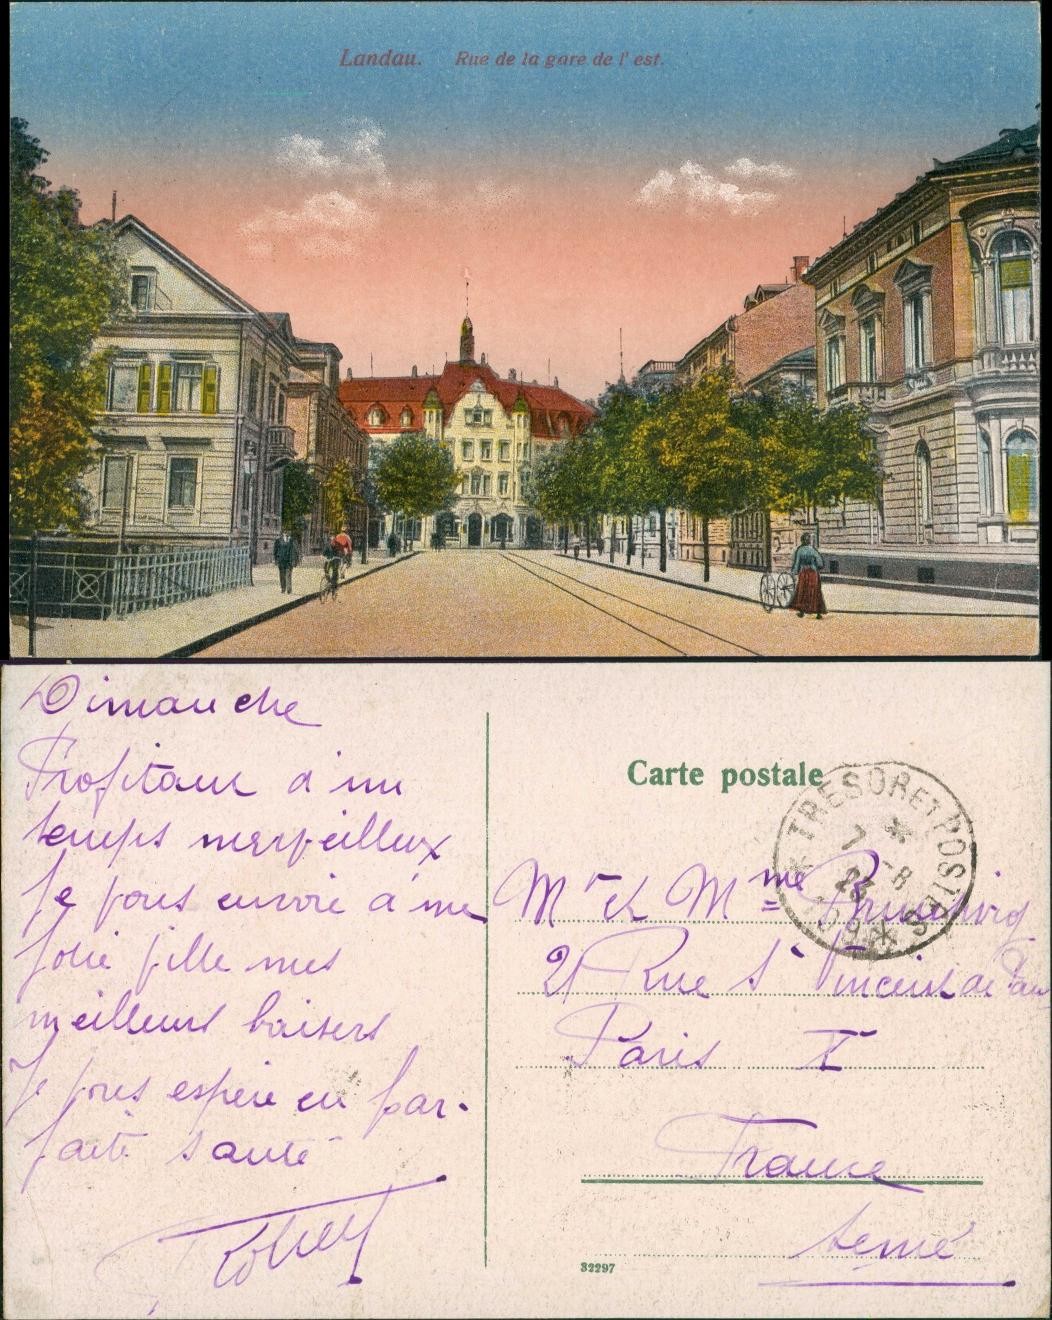 Landau. Rue de la gare de l'est.
Dimanche
Profitant d'un
temps merveilleux
Je vous envoie à une
jolie fille mes
meilleurs baisers
Je vous espère en par-
faite santé
Carte postale
TRESOR ET POSTES
7 -8
23
Mr et Mme
21 Rue St Vincent de Paul
Paris X
France
Seine
32297